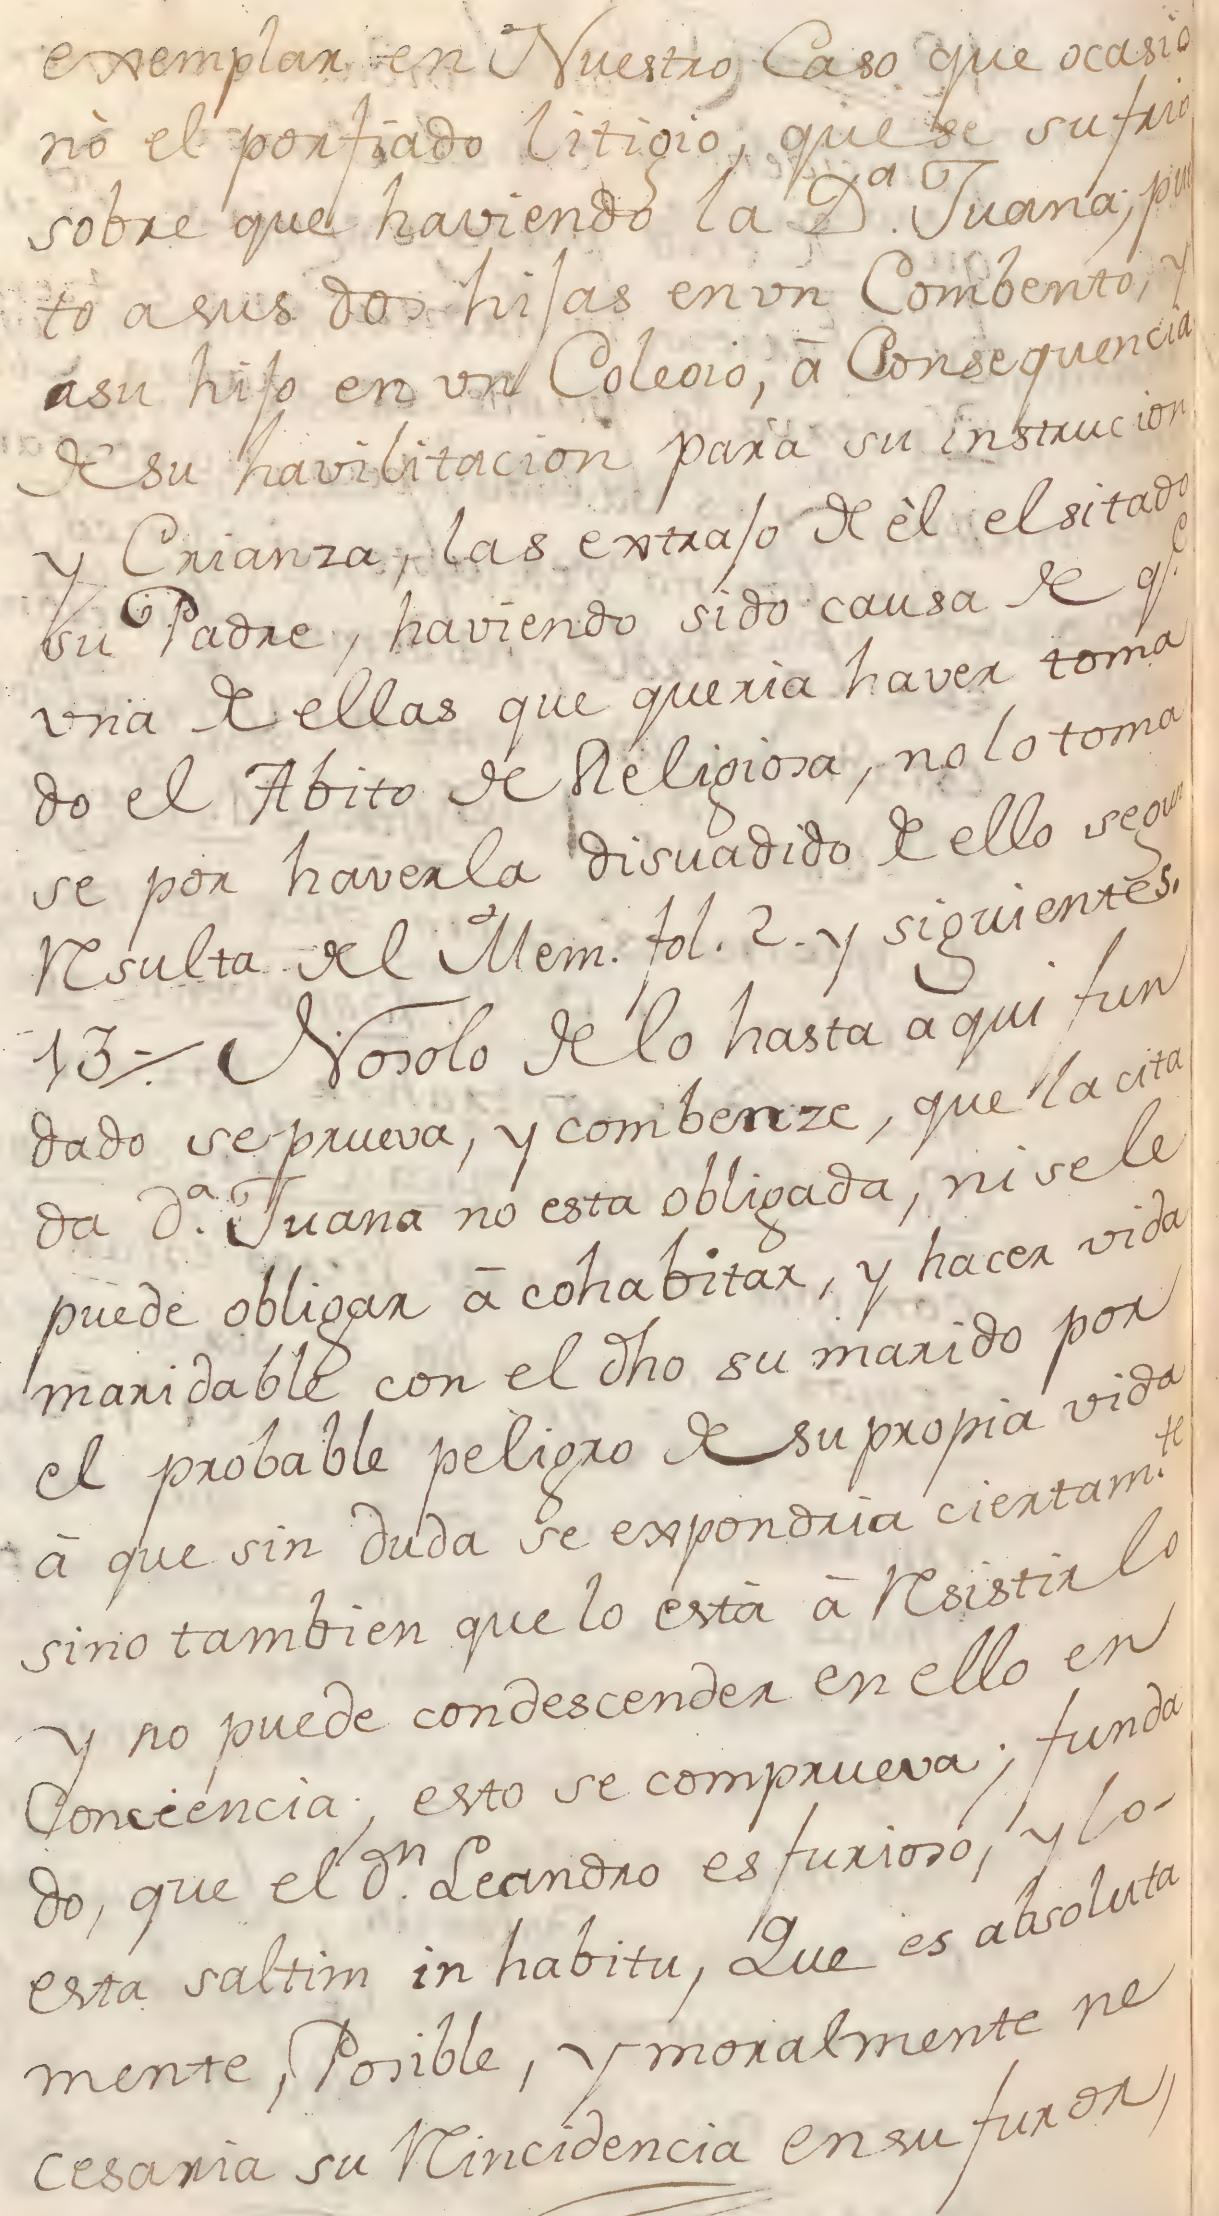 exemplar en Nuestro Caso que ocasio
nò el porfiado litigio, que se sufrio
sobre que haviendo la D.ª Juana, pues
to a sus dos hijas en vn Combento, y
asu hijo en vn Colegio, à Consequencia
de su havilitacion para su instrucion
y Crianza, las extrajo de èl el sitado
su Padre, haviendo sido causa de q.e
vna de ellas que queria haver toma
do el Abito de Religiosa, no lo toma
se por haverla disuadido de ello segun
Resulta del Mem. fol. 2. y siguientes.
13 -/. No solo de lo hasta aqui fun
dado se prueva, y combenze, que la cita
da d.ª Juana no esta obligada, ni se le
puede obligar à cohabitar, y hacer vida
maridable con el dho su marido por
el probable peligro de su propia vida
à que sin duda se expondria ciertam.te
sino tambien que lo està à Resistirlo
y no puede condescender en ello en
Conciencia, esto se comprueva; funda
do, que el d.n Leandro es furioso, y lo-
esta saltim in habitu, Que es absoluta
mente, Posible, y moralmente ne
cesaria su Reincidencia en su furor,